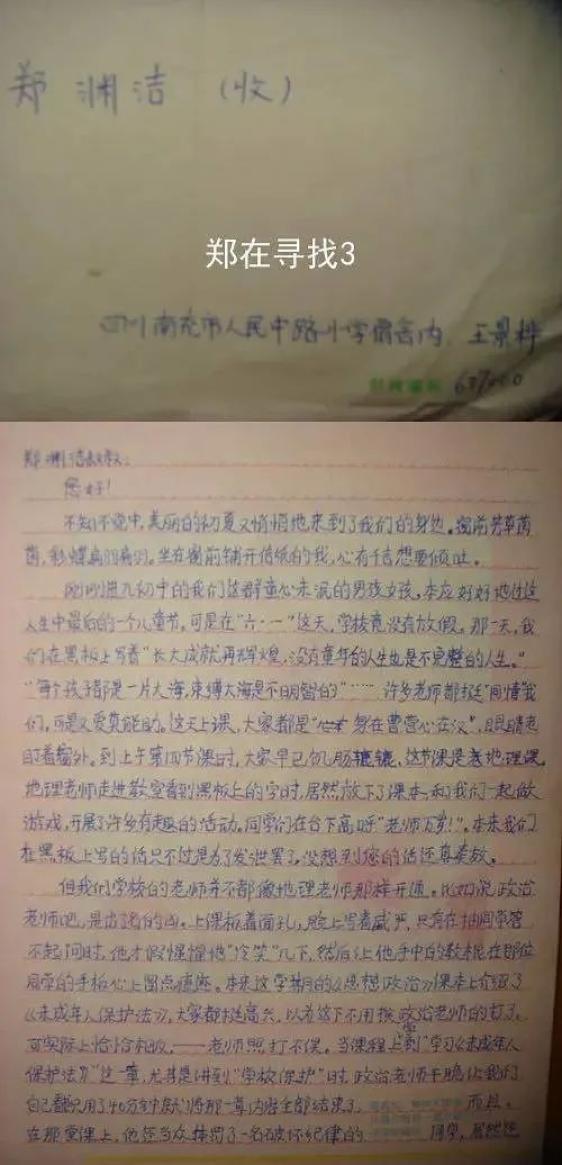 郑渊洁（收）
郑在寻找3
四川南充市人民中路小学宿舍内 王景
邮政编码 637000
郑渊洁叔叔：
您好！
不知不觉中，美丽的初夏又悄悄地来到了我们的身边。窗前芳草茵
茵，彩蝶翩翩。坐在窗前铺开信纸的我，心有千言想要倾吐。
刚刚进入初中的我们这群童心未泯的男孩女孩，本应好好地过这
人生中最后的一个儿童节，可是在"六·一"这天，学校竟没有放假。那一天，我
们在黑板上写着"长大成就再辉煌，没有童年的人生也是不完整的人生。"
"每个孩子都是一片大海，束缚大海是不明智的"……许多老师都挺"同情"我
们，可是又爱莫能助。这天上课，大家都是"身在曹营心在汉"，眼睛老
盯着窗外。到上午第四节课时，大家早已饥肠辘辘，这节课是地理课。
地理老师走进教室看到黑板上的字时，居然放下了课本，和我们一起做
游戏，开展了许多有趣的活动。同学们在台下高呼"老师万岁！"。本来我们
在黑板上写的话只不过是为了发泄罢了，没想到您的话还真奏效。
但我们学校的老师并不都像地理老师那样开通。比如说政治
老师吧，是出了名的凶。上课板着面孔，脸上写着威严，只有在抽同学答
不起问时，他才假惺惺地"冷笑"几下，然后让他手中的教棍在那位
同学的手板心上留点痕迹。本来这学期的《思想政治》课本上介绍了
《未成年人保护法》，大家都挺高兴，以为这下不用挨政治老师的打了。
可实际上恰恰相反，——老师照打不误。当课程上到"学习《未成年人
保护法》"这一章，尤其是讲到"学校保护"时，政治老师干脆让我们
自己翻，只用了40分钟就将那一章内容全部结束了。而且，
在那堂课上，他还当众体罚了一名破坏纪律的 同学，居然还